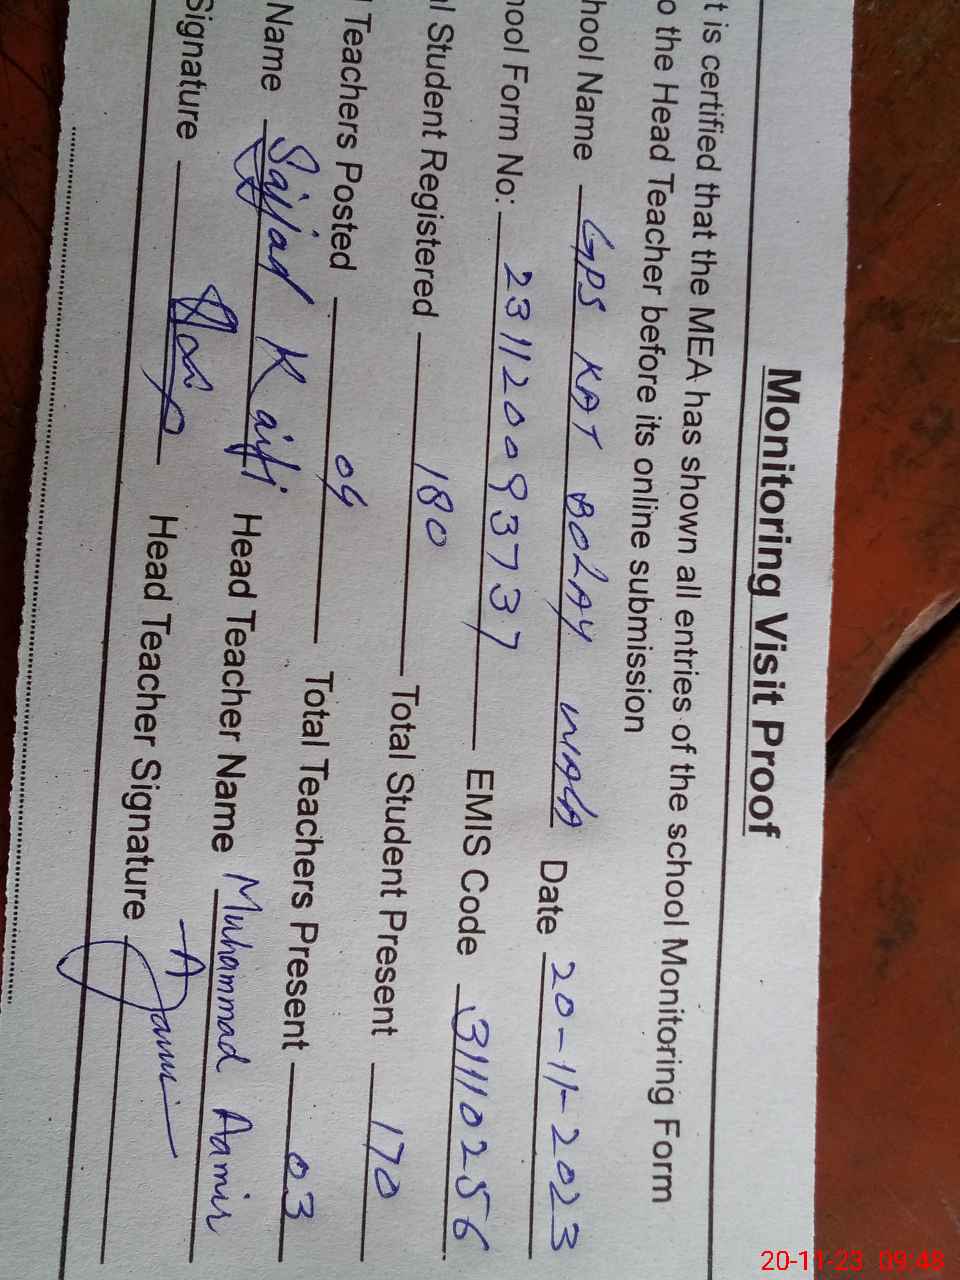 Monitoring Visit Proof
t is certified that the MEA has shown all entries of the school Monitoring Form
o the Head Teacher before its online submission
hool Name GPS KAT BOLAY WALA Date 20-11-2023
hool Form No: 231120093737 EMIS Code 31110256
l Student Registered 180 Total Student Present 170
l Teachers Posted 04 Total Teachers Present 03
Name Sajjad Kaifi Head Teacher Name Muhammad Aamir
Signature Head Teacher Signature Aamir
20-11-23 09:48